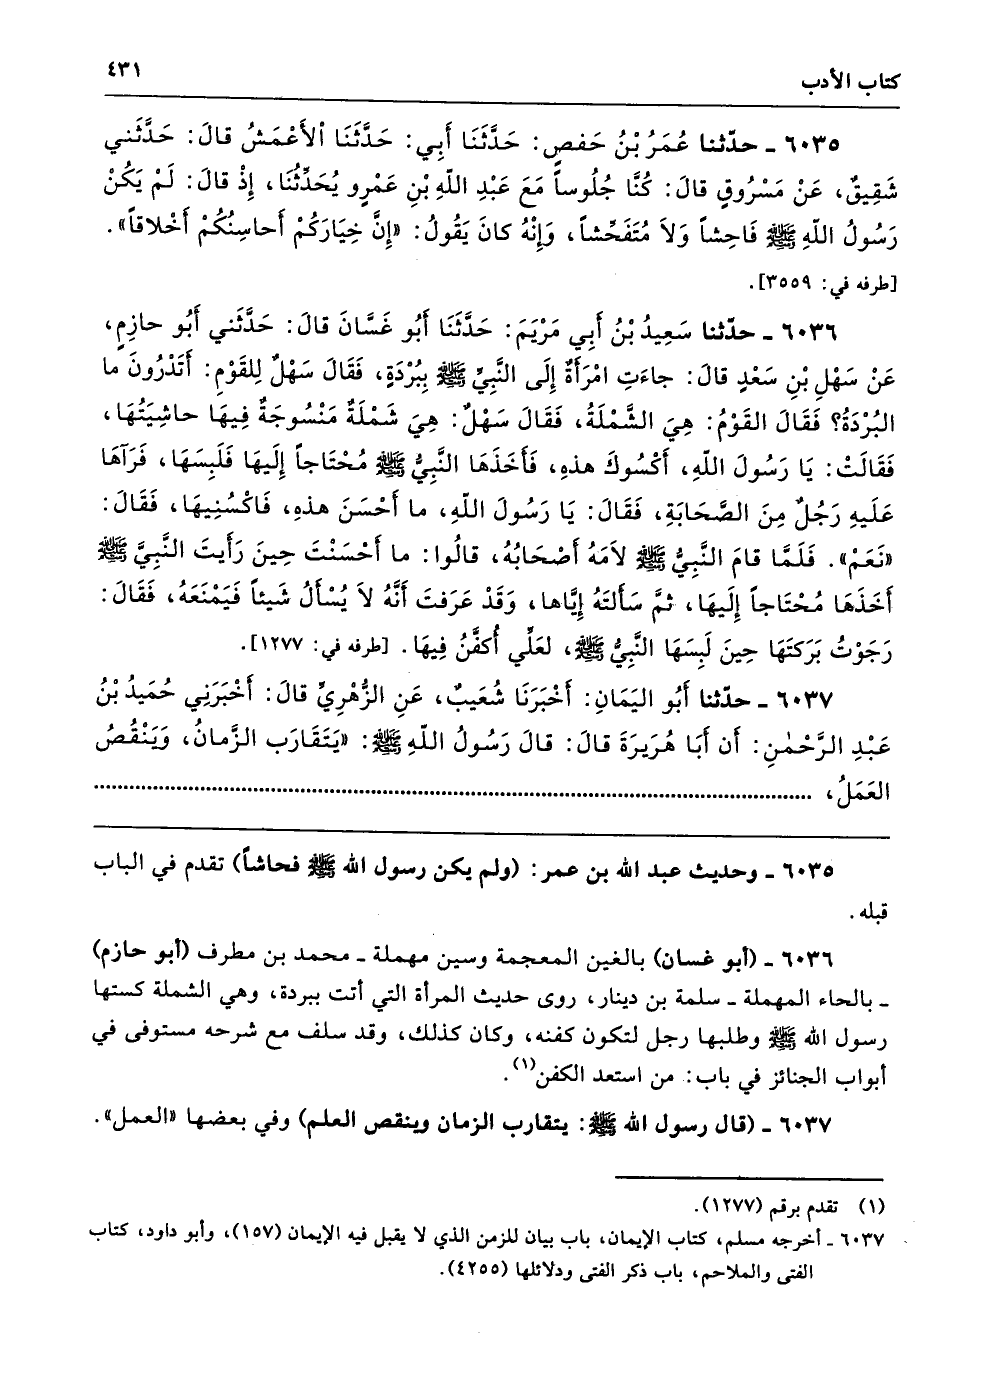 كتاب الأدب
٤٣١
٦٠٣٥ ـ حدّثنا عُمَرُ بْنُ حَفصٍ: حَدَّثَنَا أَبِي: حَدَّثَنَا الأَعْمَشُ قالَ: حَدَّثَني
شَقِيقٌ، عَنْ مَسْرُوقٍ قالَ: كُنَّا جُلُوساً مَعَ عَبْدِ اللّهِ بْنِ عَمْرٍو يُحَدِّثُنَا، إِذْ قالَ: لَمْ يَكُنْ
رَسُولُ اللّهِ ﷺ فَاحِشاً وَلاَ مُتَفَحِّشاً، وَإِنْهُ كانَ يَقُولُ: «إِنَّ خِيَارَكُمْ أَحاسِنُكُمْ أَخْلاقاً».
[طرفه في: ٣٥٥٩].
٦٠٣٦ ـ حدّثنا سَعِيدُ بْنُ أَبِي مَرْيَمَ: حَدَّثَنَا أَبُو غَسَّانَ قالَ: حَدَّثَني أَبُو حازِمٍ،
عَنْ سَهْلِ بْنِ سَعْدٍ قالَ: جاءَتِ امْرَأَةٌ إِلَى النَّبِيِّ ﷺ بِبُرْدَةٍ، فَقَالَ سَهْلٌ لِلقَوْمِ: أَتَدْرُونَ ما
البُرْدَةُ؟ فَقَالَ القَوْمُ: هِيَ الشَّمْلَةُ، فَقَالَ سَهْلٌ: هِيَ شَمْلَةٌ مَنْسُوجَةٌ فِيهَا حاشِيَتُهَا،
فَقَالَتْ: يَا رَسُولَ اللّهِ، أَكْسُوكَ هذهِ، فَأَخَذَهَا النَّبِيُّ ﷺ مُحْتَاجاً إِلَيهَا فَلَبِسَهَا، فَرَآهَا
عَلَيهِ رَجُلٌ مِنَ الصَّحَابَةِ، فَقَالَ: يَا رَسُولَ اللّهِ، ما أَحْسَنَ هذهِ، فَاكْسُنِيهَا، فَقَالَ:
«نَعَمْ». فَلَمَّا قامَ النَّبِيُّ ﷺ لاَمَهُ أَصْحَابُهُ، قالُوا: ما أَحْسَنْتَ حِينَ رَأَيتَ النَّبِيَّ ﷺ
أَخَذَهَا مُحْتَاجاً إِلَيهَا، ثمَّ سَأَلتَهُ إِيَّاها، وَقَدْ عَرَفتَ أَنَّهُ لاَ يُسْأَلُ شَيئاً فَيَمْنَعَهُ، فَقَالَ:
رَجَوْتُ بَرَكَتَهَا حِينَ لَبِسَهَا النَّبِيُّ ﷺ، لَعَلِّي أُكَفَّنُ فِيهَا. [طرفه في: ١٢٧٧].
٦٠٣٧ ـ حدّثنا أَبُو اليَمَانِ: أَخْبَرَنَا شُعَيبٌ، عَنِ الزُّهْرِيِّ قالَ: أَخْبَرَنِي حُمَيدُ بْنُ
عَبْدِ الرَّحْمٰنِ: أَن أَبَا هُرَيرَةَ قالَ: قالَ رَسُولُ اللّهِ ﷺ: «يَتَقَارَب الزَّمانُ، وَيَنْقُصُ
العَمَلُ، ................................................................
٦٠٣٥ ـ وحديث عبد الله بن عمر: (ولم يكن رسول الله ﷺ فحاشاً) تقدم في الباب
قبله.
٦٠٣٦ ـ (أبو غسان) بالغين المعجمة وسين مهملة ـ محمد بن مطرف (أبو حازم)
ـ بالحاء المهملة ـ سلمة بن دينار، روى حديث المرأة التي أتت ببردة، وهي الشملة كستها
رسول الله ﷺ وطلبها رجل لتكون كفنه، وكان كذلك، وقد سلف مع شرحه مستوفى في
أبواب الجنائز في باب: من استعد الكفن(١).
٦٠٣٧ ـ (قال رسول الله ﷺ: يتقارب الزمان وينقص العلم) وفي بعضها «العمل».
(١) تقدم برقم (١٢٧٧).
٦٠٣٧ ـ أخرجه مسلم، كتاب الإيمان، باب بيان للزمن الذي لا يقبل فيه الإيمان (١٥٧)، وأبو داود، كتاب
الفتى والملاحم، باب ذكر الفتى ودلائلها (٤٢٥٥).